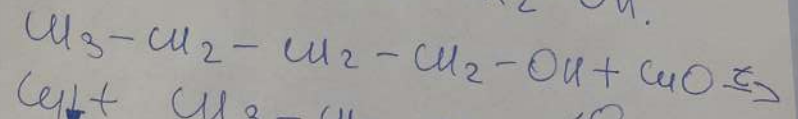 CH3-CH2-CH2-CH2-OH+CuO t→
Cu↓+ CH3-